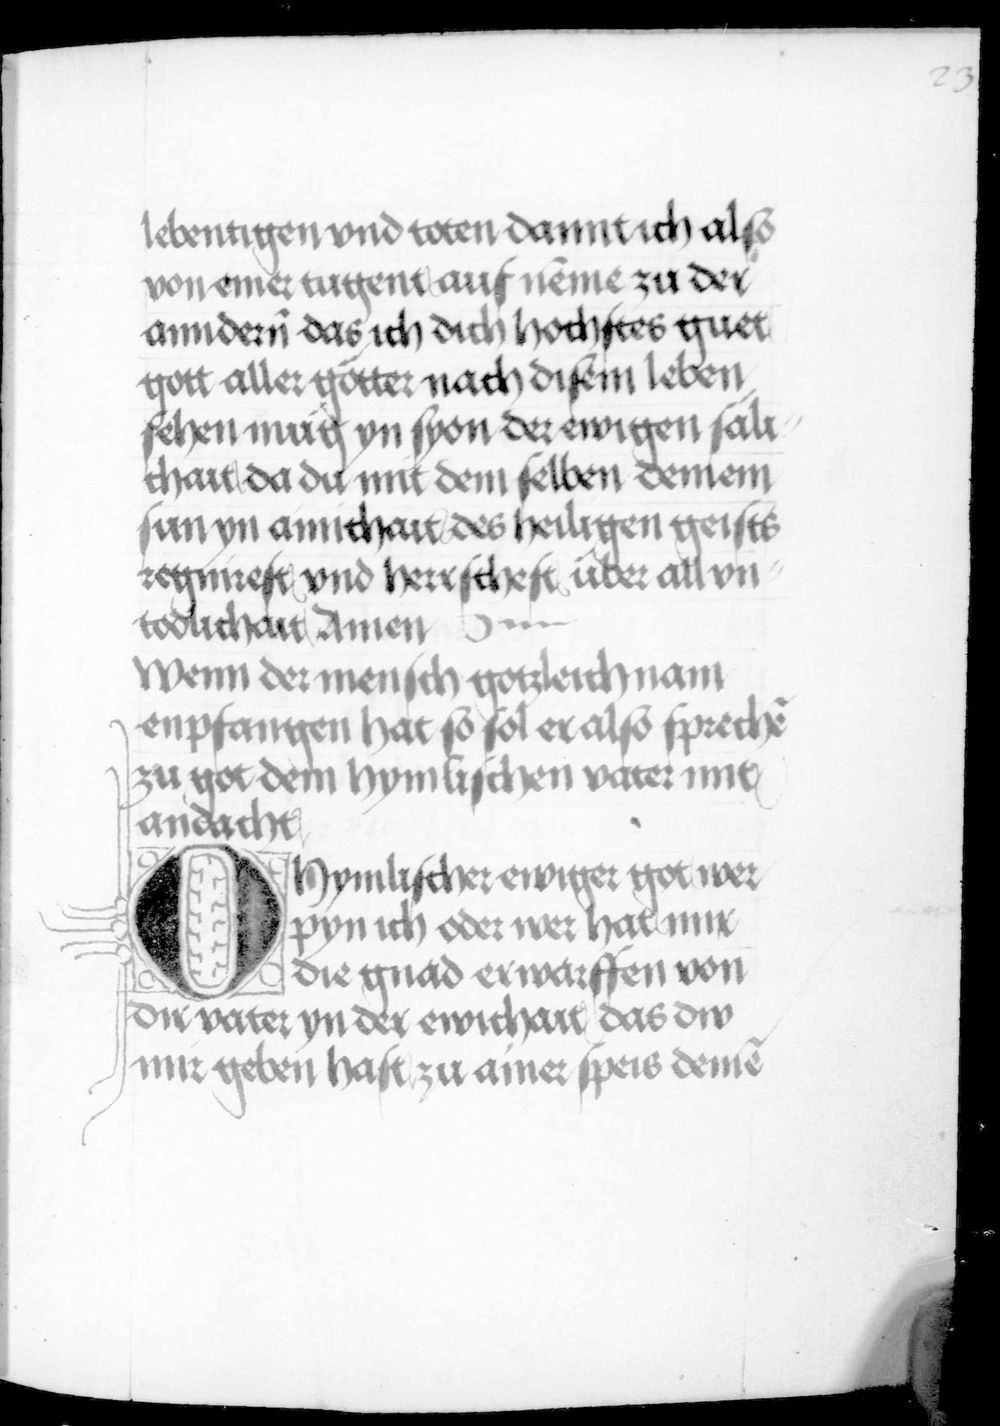 23
lebentigen vnd toten damit ich also
von einer tugent auf neme zu der
anndern̄ das ich dich hochstes guet
gott aller götter nach disem leben
sehen müg yn syon der ewigen säli
chait da du mit dem selben deinem
sun yn ainichait des heiligen geists
regnirest vnd herrschest über all vn
todlichait Amen
Wenn der mensch gotzleichnam
enpfangen hat so sol er also sprechē
zu got dem hymlischen vater mit
andacht
O hymlischer ewiger got wer
pyn ich oder wer hat mir
die gnad erwarffen von
dir vater yn der ewichait das dw
mir geben hast zu ainer speis deinē